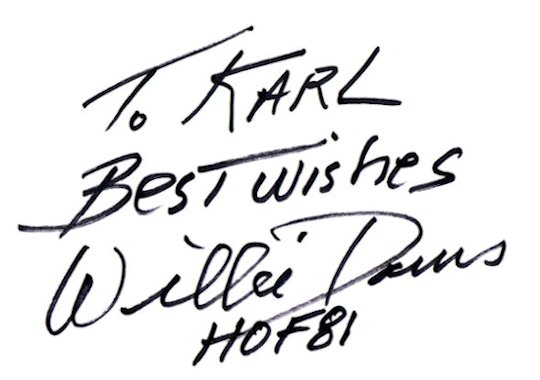 To KARL
Best wishes
Willie Davis
HOF81